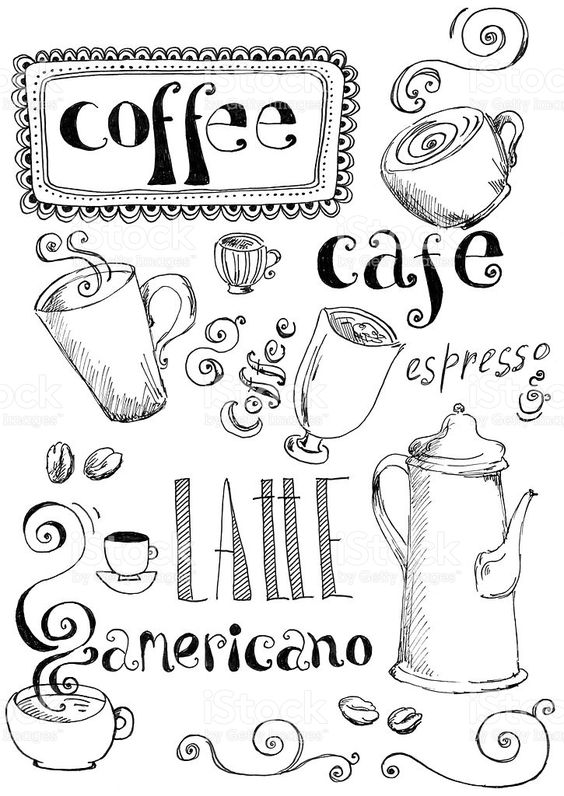 coffee
cafe
coffee
espresso
LATTE
americano
iStock
by Getty Images™